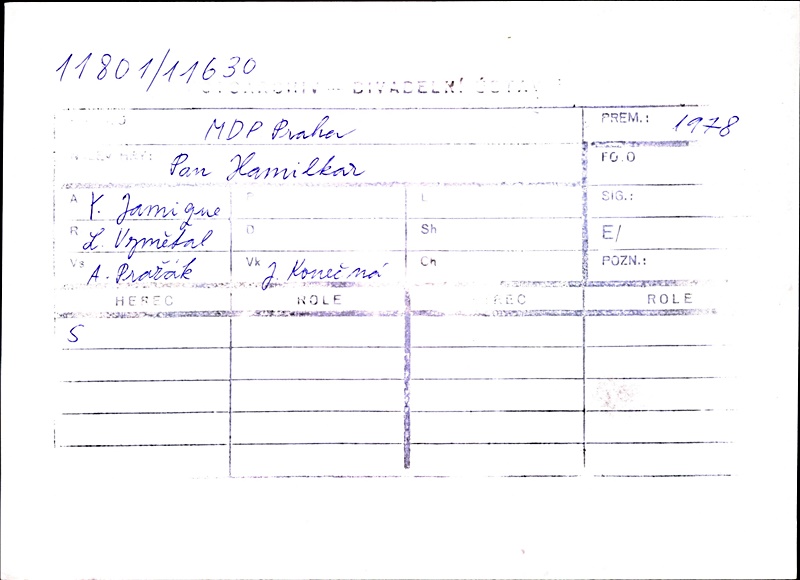 11801/11630
DIVADELNÍ ÚSTAV
MDP Praha PREM.: 1978
Pan Hamilkar FOTO
A Y. Jamique L SIG.:
R L. Vymětal D Sh E/
Vs A. Pražák Vk J. Konečná Ch POZN.:
HEREC ROLE HEREC ROLE
S